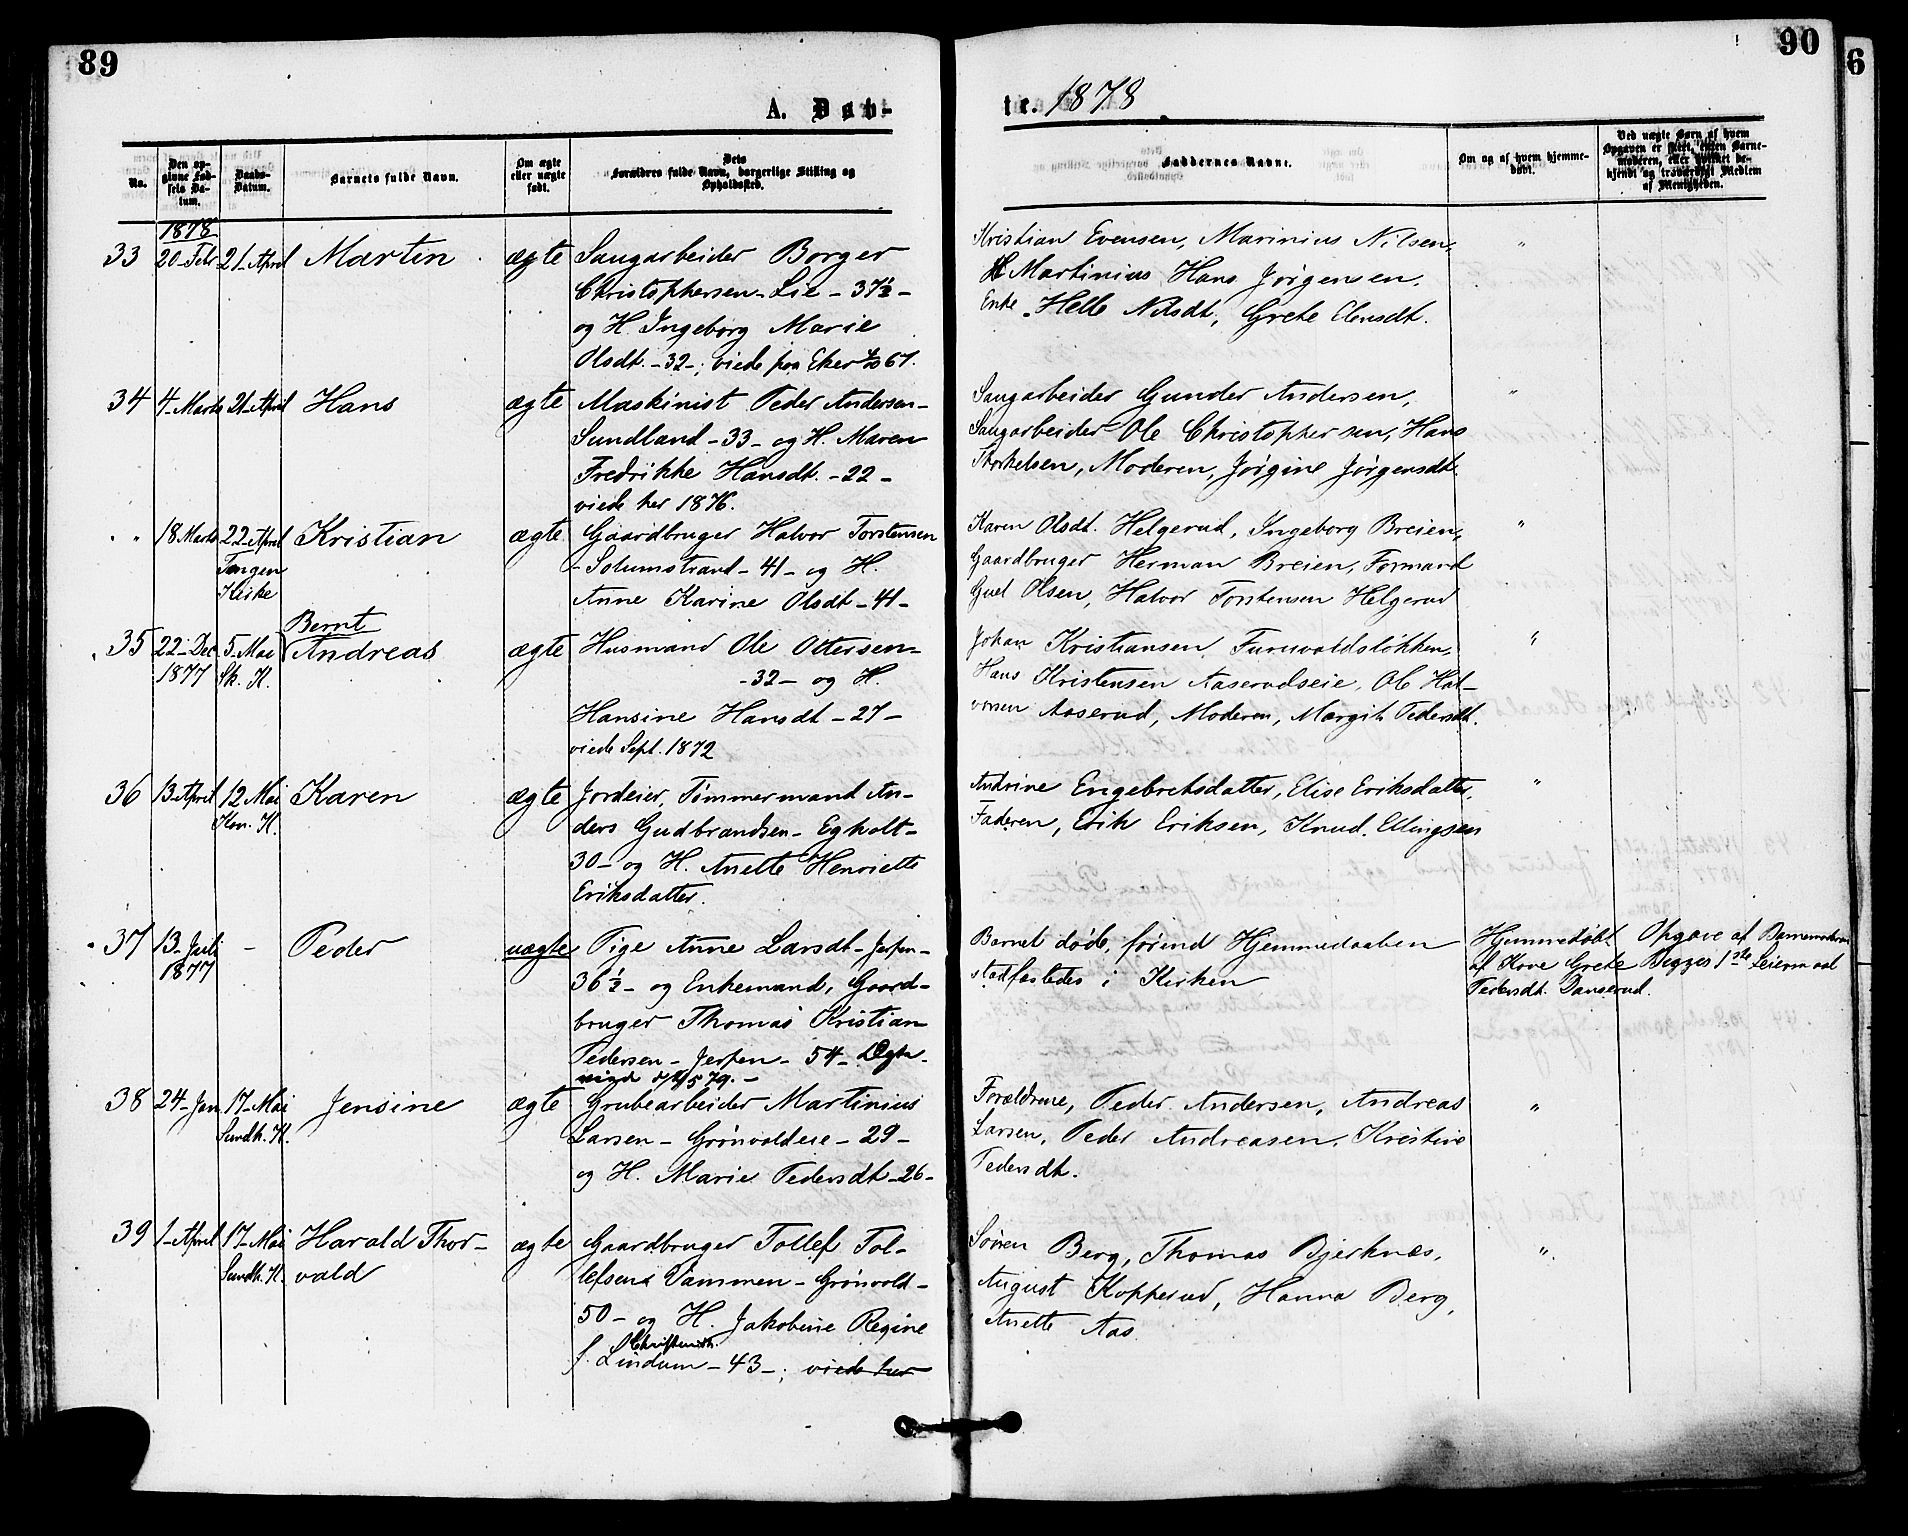 89
A. Døb-
No.
Den op-
givne Fød-
sels Da-
tum.
Daabs-
Datum.
Barnets fulde Navn.
Om ægte
eller uægte
født.
Dets
Forældres fulde Navn, borgerlige Stilling og
Opholdssted.
1878
33 20 Febr 21 April Martin ægte Saugarbeider Borger
Christophersen - Lie - 37½ -
og H. Ingeborg Marie
Olsdt. - 32 -; viede paa Eker 67.
34 4 Marts 21 April Hans ægte Maskinist Peder Andersen -
Sundland - 33 - og H. Maren
Fredrikke Hansdt. - 22 -
viede her 1876.
" 18 Marts 22 April Kristian ægte Gaardbruger Halvor Torstensen
Tangen
Kirke
- Solumstrand - 41 - og H.
Anne Karine Olsdt - 41 -
35 22 Dec 1877 5 Mai Sk. K. Bernt
Andreas ægte Husmand Ole Ottersen -
- 32 - og H.
Hansine Hansdt - 27 -
viede Sept. 1872
36 13 April 12 Mai Kon. K. Karen ægte Jordeier, Tømmermand An-
ders Gudbrandsen - Egholt -
30 - og H. Anette Henriette
Eriksdatter.
37 13 Juli 1877 - Peder uægte Pige Anne Larsdt - Jerpen -
36½ - og Enkemand, Gaard-
bruger Thomas Kristian
Pedersen - Jerpen - 54 -
38 24 Jan 17 Mai Sundh. K. Jensine ægte Grubearbeider Martinius
Larsen - Grønvoldeie - 29 -
og H. Marie Pedersdt - 26 -
39 1 April 17 Mai Sundh. K. Harald Thor-
vald ægte Gaardbruger Tollef Tol-
lefsens Dammen - Grønvold -
50 - og H. Jakobine Regine
Christensdt.
f. Lindum - 43 -; viede her
90
te. 1878
Faddernes Navne.
Om og af hvem hjemme-
døbt.
Ved uægte Børn af hvem
Opgaven er skeet, enten Barne-
moderen, eller hvilket be-
kjendt og troværdigt Medlem
af Menigheden.
Kristian Evensen, Marinius Nilsen, "
Martinius Hans Jørgensen,
Enke Helle Nilsdt, Grete Elensdt.
Saugarbeider Gunder Andersen, "
Saugarbeider Ole Christophersen, Hans
Thorkelsen, Moderen, Jørgine Jørgensdt.
Karen Olsdt. Helgerud, Ingeborg Breien, "
Gaardbruger Herman Breien, Formand
Gul Olsen, Halvor Torstensen Helgerud
Johan Kristiansen Furuvoldsløkken, "
Hans Kristensen Aaserudseie, Ole Hal-
vorsen Aaserud, Moderen, Margith Pedersdt.
Andrine Engebretsdatter, Elise Eriksdatter, "
Faderen, Erik Eriksen, Knud Ellingsen
Barnet døde, førend Hjemmedaaben
stadfæstedes i Kirken
Hjemmedøbt
af Kone Grete
Pedersdt. Danserud.
Opgave af Barnemoderen
Begges 1ste Leiermaal
Forældrene, Peder Andersen, Andreas "
Larsen, Peder Andreasen, Kristine
Pedersdt.
Søren Berg, Thomas Bjerknæs, "
August Kopperud, Hanna Berg,
Anette Aas.
6